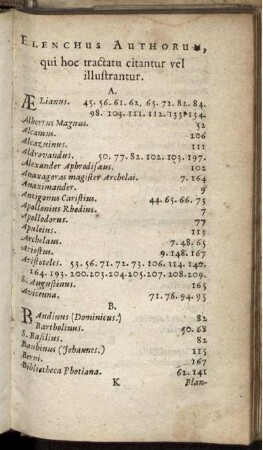 ELENCHUS AUTHORUM,
qui hoc tractatu citantur vel
illustrantur.
A.
ÆLianus. 45. 56. 61. 62. 65. 72. 82. 84.
98. 103. 111. 112. 133. 134.
Albertus Magnus. 52
Alcamus. 106
Alcazninus. 111
Aldrovandus. 50. 77. 82. 102. 103. 197.
Alexander Aphrodisæus. 102
Anaxagoras magister Archelai. 7. 164
Anaximander. 9
Antigonus Caristius. 44. 65. 66. 73
Apollonius Rhodius. 7
Apollodorus. 77
Apuleius. 113
Archelaus. 7. 48. 65
Ariostus. 9. 148. 167
Aristoteles. 53. 56. 71. 72. 73. 106. 114. 140.
164. 193. 200. 203. 204. 205. 207. 208. 209.
S. Augustinus. 165
Avicenna. 71. 76. 94. 95
B.
BAndinus (Dominicus.) 82
Bartholinus. 50. 68
S. Basilius. 82
Bauhinus (Johannes.) 115
Berni. 167
Bibliotheca Photiana. 62. 141
K Blan-